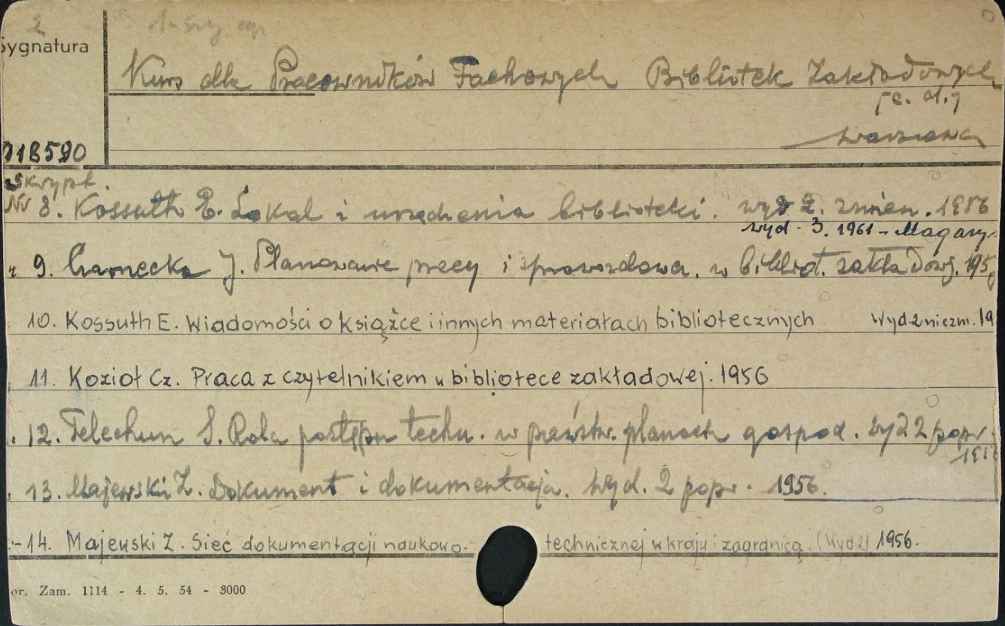 2
Sygnatura
Kurs dla Pracowników Fachowych Bibliotek Zakładowych
[c. d.]
Warszawa
918590
Skrypt.
Nr 8. Kossuth E. Lokal i urządzenia biblioteki. wyd 2. zmien. 1956
wyd. 3. 1961 - Magazy.
9. Czarnecka J. Planowanie pracy i sprawozdawcz. w bibliot. zakładow. 195
10. Kossuth E. Wiadomości o książce i innych materiałach bibliotecznych Wyd 2 niezm. 19
11. Kozioł Cz. Praca z czytelnikiem w bibliotece zakładowej. 1956
12. Telechun S. Rola postępu techn. w planach gospod. wyd 2 popr.
1956
13. Majewski Z. Dokument i dokumentacja. Wyd. 2 popr. 1956.
- 14. Majewski Z. Sieć dokumentacji naukowo- technicznej w kraju i zagranicą. (Wyd 2) 1956.
or. Zam. 1114 - 4. 5. 54 - 3000